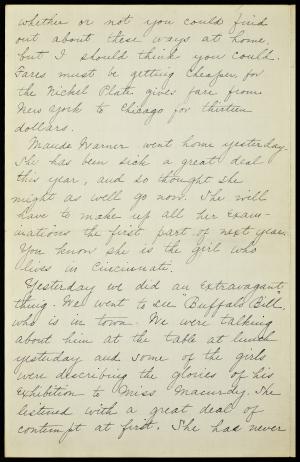 whether or not you could find
out about these ways at home,
but I should think you could.
Fares must be getting cheaper, for
the Nickel Plate gives fare from
New York to Chicago for thirteen
dollars.
Maude Warner went home yesterday.
She has been sick a great deal
this year, and so thought she
might as well go now. She will
have to make up all her exam-
inations the first part of next year.
You know she is the girl who
lives in Cincinnati.
Yesterday we did an extravagant
thing. We went to see "Buffalo Bill"
who is in town. We were talking
about him at the table at lunch
yesterday and some of the girls
were describing the glories of his
exhibition to Miss Macurdy. She
listened with a great deal of
contempt at first. She has never